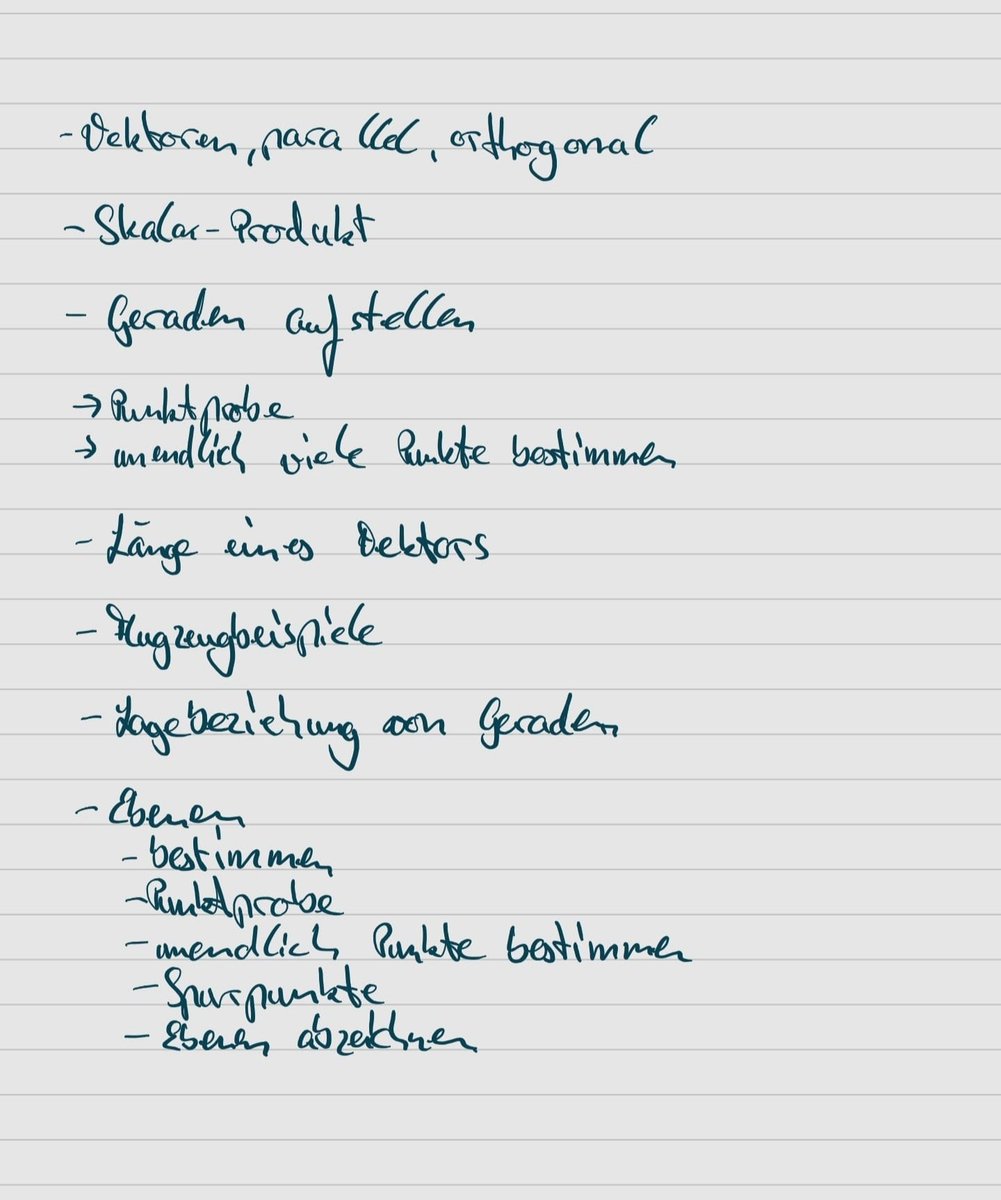 - Vektoren, parallel, orthogonal
- Skalar-Produkt
- Geraden aufstellen
→ Punktprobe
→ unendlich viele Punkte bestimmen
- Länge eines Vektors
- Flugzeugbeispiele
- Lagebeziehung von Geraden
- Ebenen
- bestimmen
- Punktprobe
- unendlich Punkte bestimmen
- Spurpunkte
- Ebenen abzeichnen